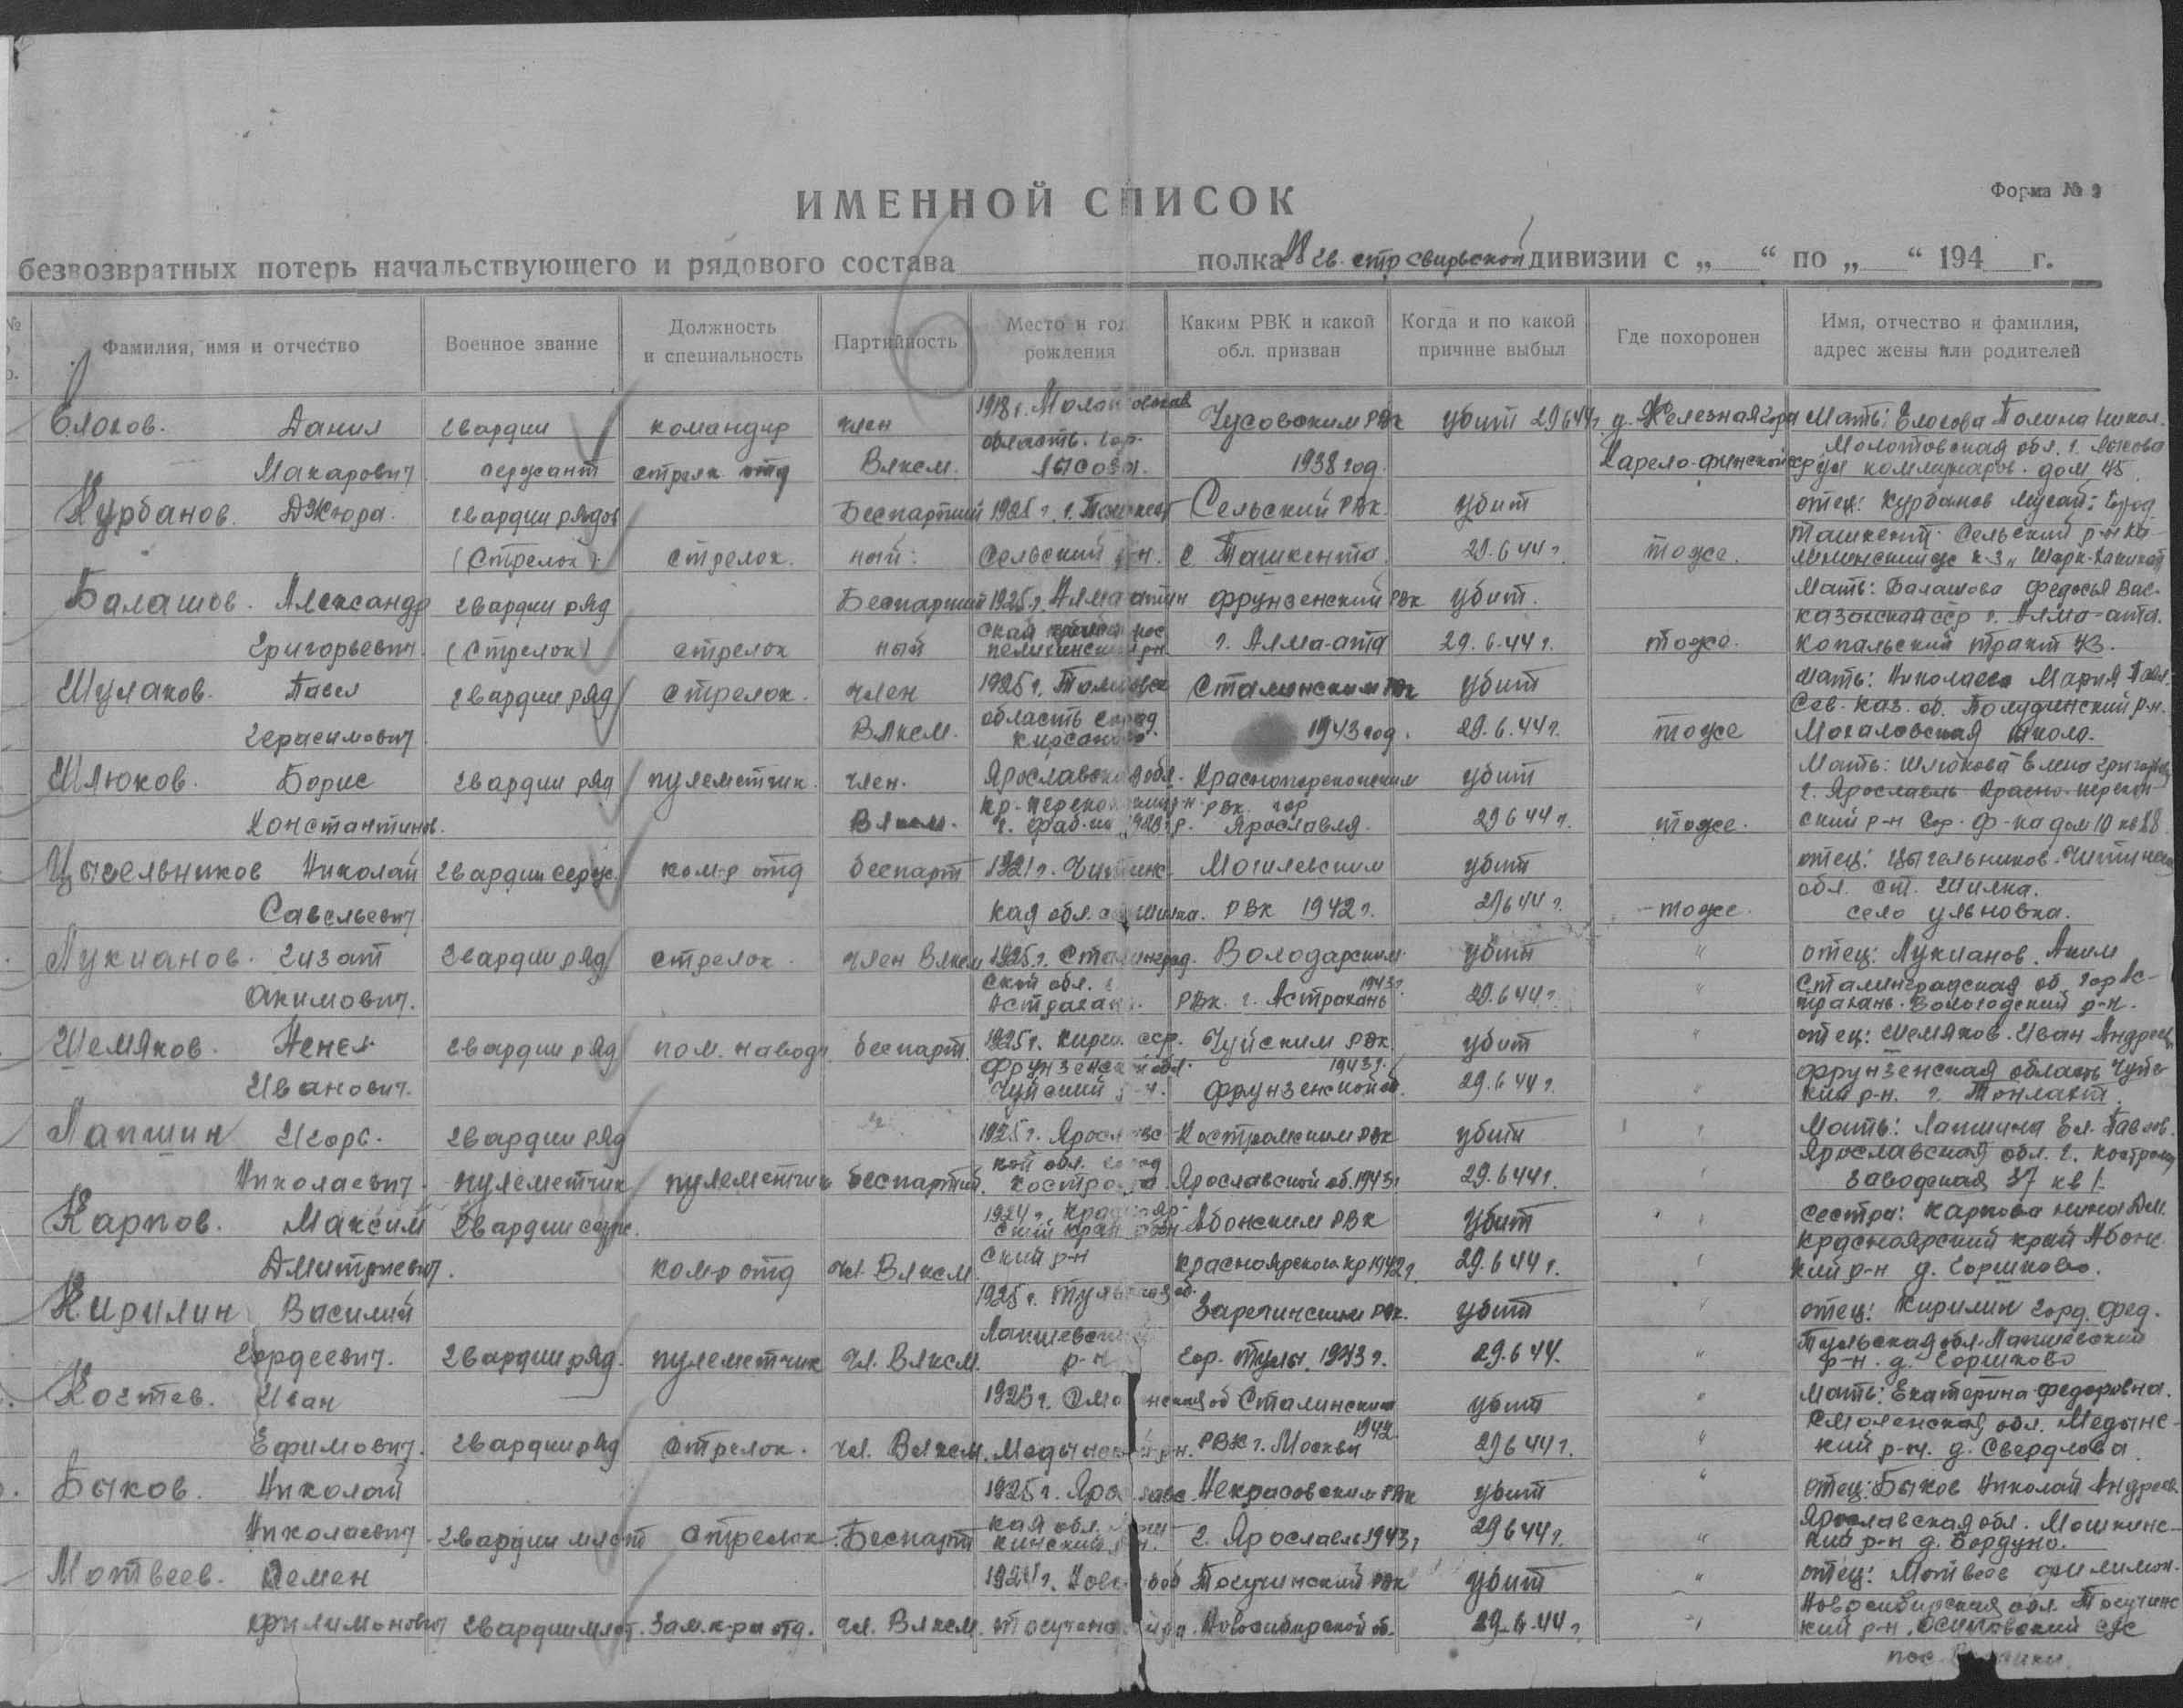 ИМЕННОЙ СПИСОК
Форма №
безвозвратных потерь начальствующего и рядового состава полка 98 гв. стр свирьской дивизии с „ “ по „ “ 194 г.
№ Фамилия, имя и отчество Военное звание Должность и специальность Партийность Место и год рождения Каким РВК и какой обл. призван Когда и по какой причине выбыл Где похоронен Имя, отчество и фамилия, адрес жены или родителей
Елохов. Данил гвардии командир член 1918 г. область. гор. Чусовским РВК убит 29 6 44 г. д. Железная гора Мать: Полина Никол.
Макарович сержант стрелк отд Влксм. Лысова. 1938 год. Карело-финской сср Молотовская обл. г. Лысова ул коммунаров. дом 45
Курбанов. Джюра. гвардии рядов Беспартий 1925 г. г. Ташкент Сельский РВК убит отец: Курбанов Мусай: город
(Стрелок) стрелок. ный: Сельский р-н. г. Ташкента. 29.6 44 г. тоже. Ташкент. Сельский р-н
Балашов. Александр гвардии ряд Беспартий 1925 г. Алма атин Фрунзенский РВК убит. Мать: Балашова Федосья Вас.
Григорьевич. (Стрелок) стрелок ный ской г. Алма-ата 29.6.44 г. тоже. казахская сср г. Алма-ата. Копальский тракт
Шулаков. Павел гвардии ряд стрелок. член 1925 г. Сталинским РВК убит мать: Николаева Мария Павл.
Герасимович. Влксм. область город 1943 год. 29.6.44 г. тоже Сев. каз. об. Полудинский р-н. школа.
Шлюков. Борис гвардии ряд пулеметчик. член. Ярославская обл. Красноперекопским убит Мать: Шлюкова Елена Григорьев
Константинов. Влксм. кр-перекопский р-н РВК. гор Ярославля. 29 6 44 г. тоже. г. Ярославль Красно-перекоп ский р-н ф-ка дом 10 кв 88
Цыгельников Николай гвардии серж. ком-р отд беспарт 1921 г. Читинс Могилевским убит отец: Цыгельников. Читинская
Савельевич кая обл. ст Шилка. РВК 1942 г. 29 6 44 г. тоже. обл. ст. Шилка. село ульновка.
Лукианов. Гизат гвардии ряд стрелок. член Влксм 1925 г. Сталинград. Володарским убит " отец: Лукианов. Аким
Акимович. ской обл. г. Астрахань. РВК. г. Астрахань 1943 г. 29.6 44 г. " Сталинградская об. гор Ас- трахань. р-н.
Шемяков. гвардии ряд пом. навод. беспарт. 1925 г. Кирги. сср. Чуйским РВК. убит " отец: Шемяков. Иван Андреев
Иванович. Фрунзенской обл. Чуйский р-н. 1943 г. Фрунзенской об. 29.6 44 г. Фрунзенская область Чуйс- кий р-н. г.
Лапшин Игорь. гвардии ряд 1925 г. Ярославс Костромским РВК убит Мать: Лапшина Ел. Павлов.
Николаевич. пулеметчик пулеметчик беспартий. кой обл. город Кострома Ярославской об. 1943 г 29.6 44 г. Ярославская обл. г. Кострома Заводская 37 кв 1.
Карпов. Максим гвардии серж. 1924 г. Красноярский край Абанским РВК убит сестра: Карпова Нина Дм.
Дмитриевич. ком-р отд чл. Влксм ский р-н Красноярского. кр 1942 г. 29.6 44 г. Красноярский край кий р-н д. Горшково.
Кирилин Василий 1925 г. Тульская об. Заречинским РВК. убит " отец: Кирилин Горд. Фед.
Гордеевич. гвардии ряд. пулеметчик чл. Влксм. р-н гор. Тулы. 1943 г. 29.6 44. " Тульская обл. р-н. д. Горшково
Когтев. Иван 1925 г. Смоленская об Сталинским убит " Мать: Екатерина Федоровна.
Ефимович. гвардии ряд стрелок. чл. Влксм. Медынский р-н. РВК г. Москвы 1942 29 6 44 г. " Смоленская обл. Медынс- кий р-н. д. Свердлова.
Быков. Николай 1925 г. Ярославс Некрасовским РВК убит " отец: Быков Николай Андреев.
Николаевич. гвардии мл ст стрелок. Беспарт кая обл. г. Ярославль 1943 г 29 6 44 г. " Ярославская обл. кий р-н д.
Матвеев. Семен 1924 г. Тогучинский РВК убит " отец: Матвеев Филимон.
Филимонович гвардии мл ст. Зам. к-ра отд. чл. Влксм. Новосибирской об. 29.6.44 г. Новосибирская обл. Тогучинс кий р-н. с/с
пос.